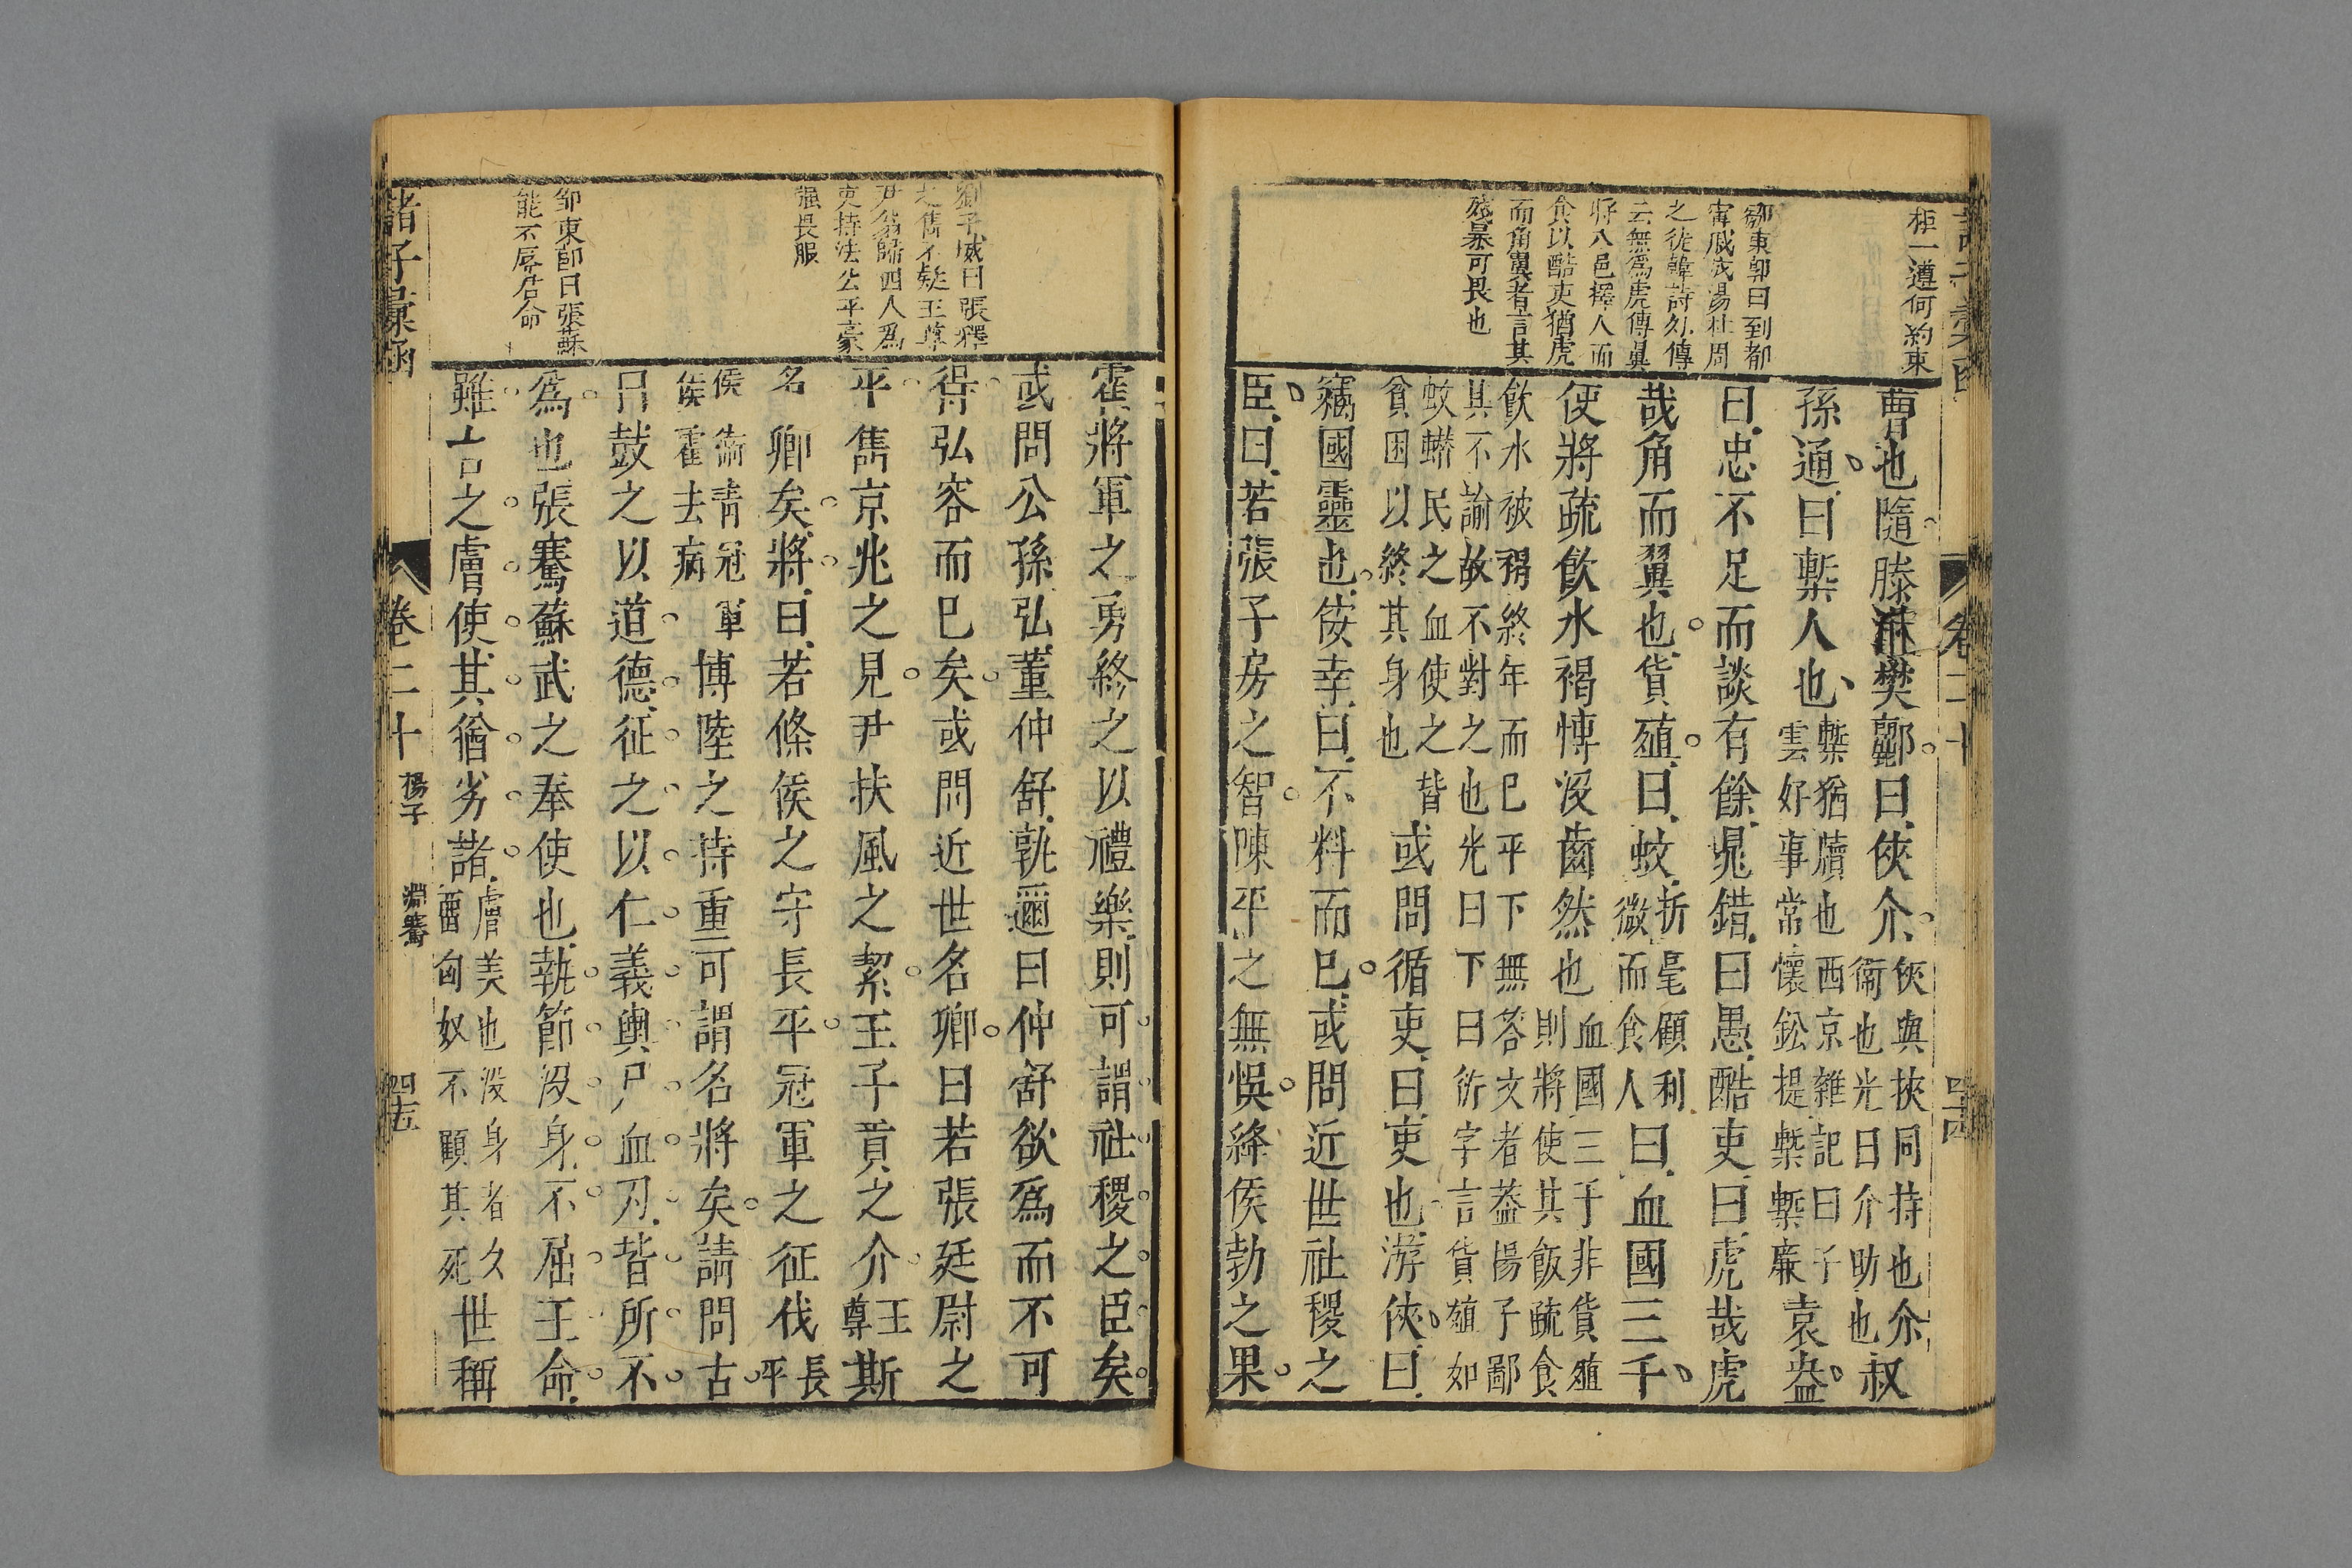 拒一遵何約束
鄒東郭曰到都
甯成湯杜周
之徒韓詩外傳
云無爲虎傅翼
將入邑擇人而
食以酷吏猶虎
而角翼者言其
殘暴可畏也
曹也隨滕灌樊酈曰俠介
俠與挾同持也介
衞也光曰介助也
叔
孫通曰槧人也
槧猶牘也西京雜記曰子
雲好事常懷鉛提槧槧廉
袁盎
曰忠不足而談有餘晁錯曰愚酷吏曰虎哉虎
哉角而翼也貨殖曰蚊
折毫顧利
微而食人
曰血國三千
使將疏飲水褐博没齒然也
血國三千非貨殖
則將使其飯疏食
飲水被褐終年而已平下無答文者蓋揚子鄙
其不諭故不對之也光曰下曰衍字言貨殖如
蚊蠎民之血使之皆
貧困以終其身也
或問循吏曰吏也游俠曰
竊國靈也佞幸曰不料而已或問近世社稷之
臣曰若張子房之智陳平之無悞絳侯勃之果
卷二十
四十四
劉子威曰張釋
之雋不疑王尊
尹翁歸四人爲
吏持法公平豪
强畏服
鄒東郭曰張蘇
能不辱君命
霍將軍之勇終之以禮樂則可謂社稷之臣矣
或問公孫弘董仲舒孰邇曰仲舒欲爲而不可
得弘容而已矣或問近世名卿曰若張廷尉之
平雋京兆之見尹扶風之絜王子貢之介
王
尊
斯
名卿矣將曰若條侯之守長平冠軍之征伐
長
平
侯衞青冠軍
侯霍去病
博陸之持重可謂名將矣請問古
曰鼓之以道德征之以仁義輿尸血刃皆所不
爲也張騫蘇武之奉使也執節没身不屈王命
雖古之膚使其猶劣諸
膚美也没身者久
留匈奴不顧其死
世稱
諸子彙函
卷二十
揚子
淵騫
四十五